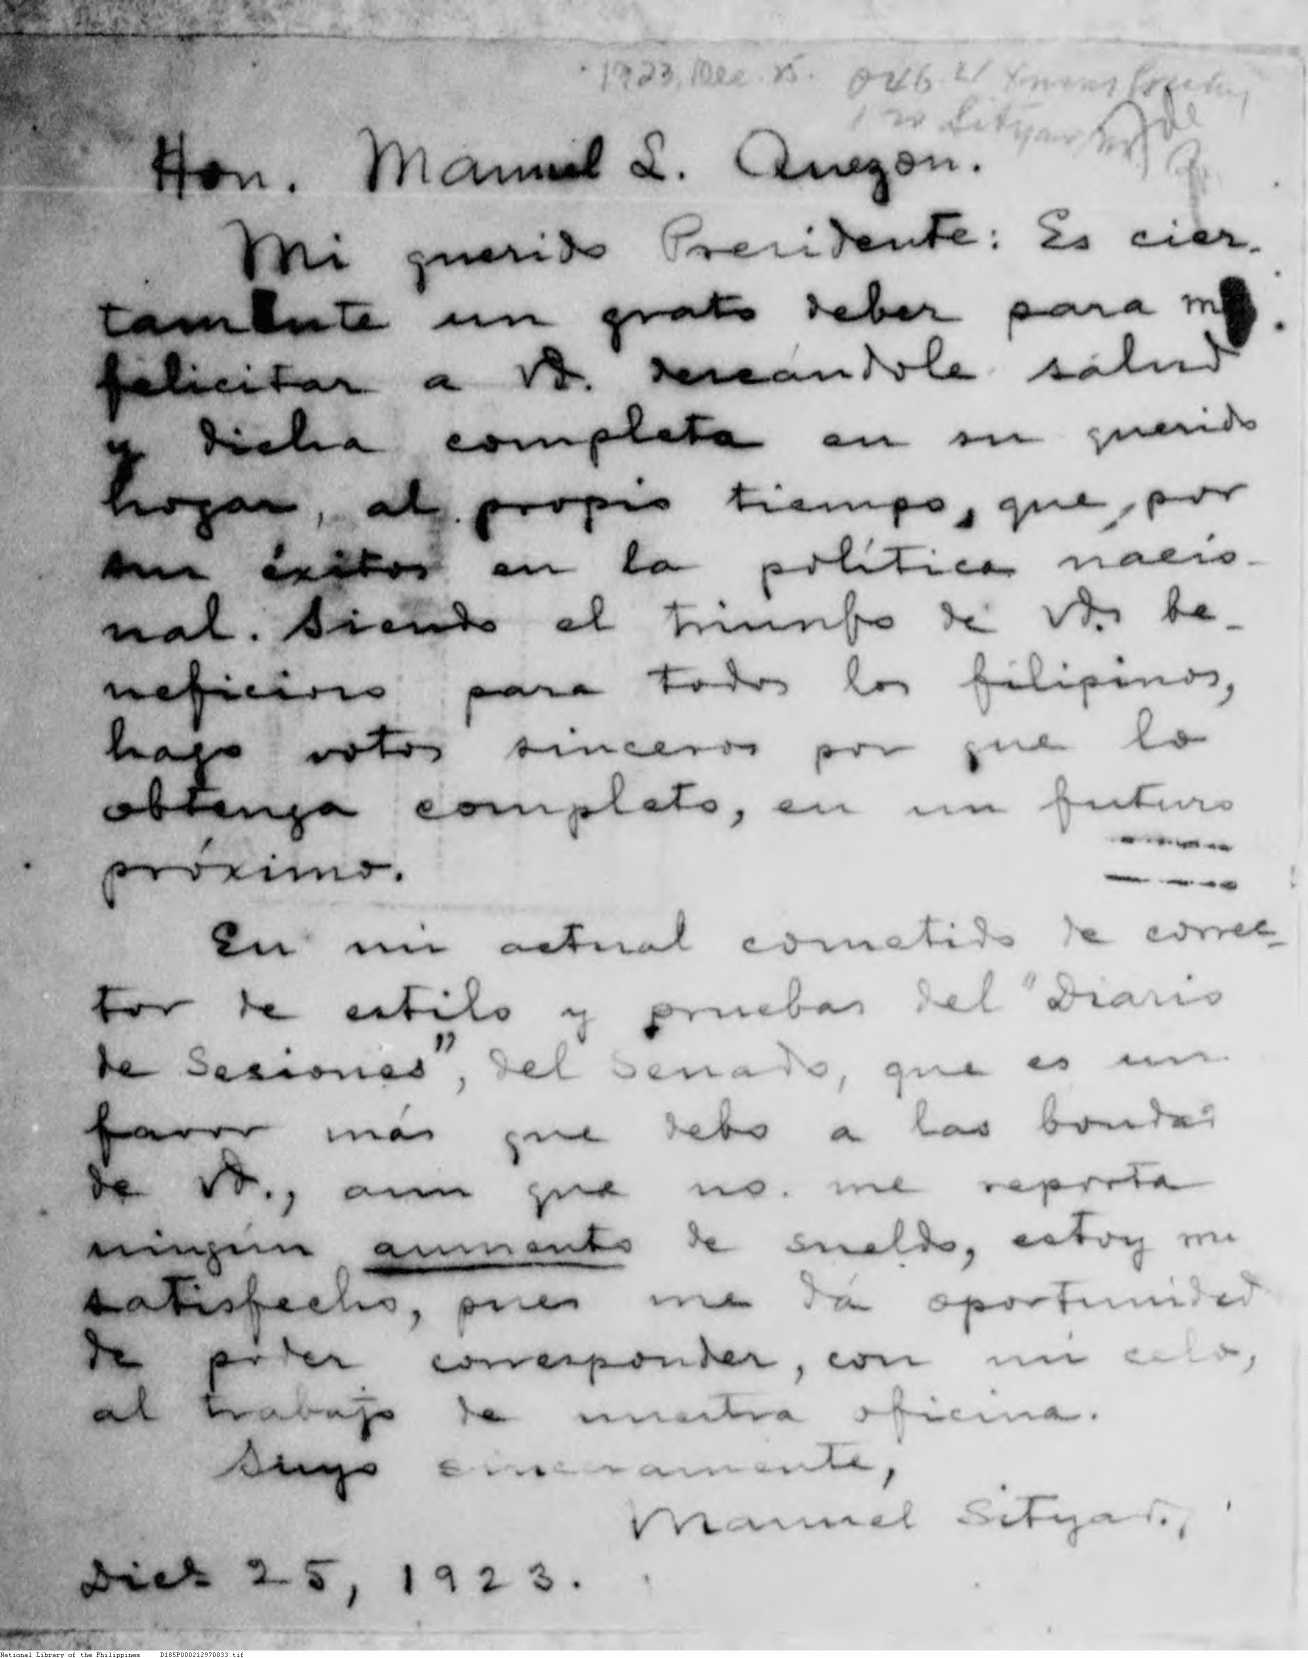 1923, Dec. 25.
Hon. Manuel L. Quezon.
Mi querido Presidente: Es cier-
tamente un grato deber para mí
felicitar a Vd. deseándole salud
y dicha completa en su querido
hogar, al propio tiempo, que, por
sus éxitos en la política nacio-
nal. Siendo el triunfo de Vd. be-
neficioso para todos los filipinos,
hago votos sinceros por que lo
obtenga completo, en un futuro
próximo.
En mi actual cometido de correc-
tor de estilo y pruebas del "Diario
de Sesiones", del Senado, que es un
favor más que debo a las bondades
de Vd., aun que no me reporta
ningún aumento de sueldo, estoy mu
satisfecho, pues me dá oportunidad
de poder corresponder, con mi celo,
al trabajo de nuestra oficina.
Suyo sinceramente,
Manuel Sityar.
Dicb 25, 1923.
National Library of the Philippines D185P000212970833.tif